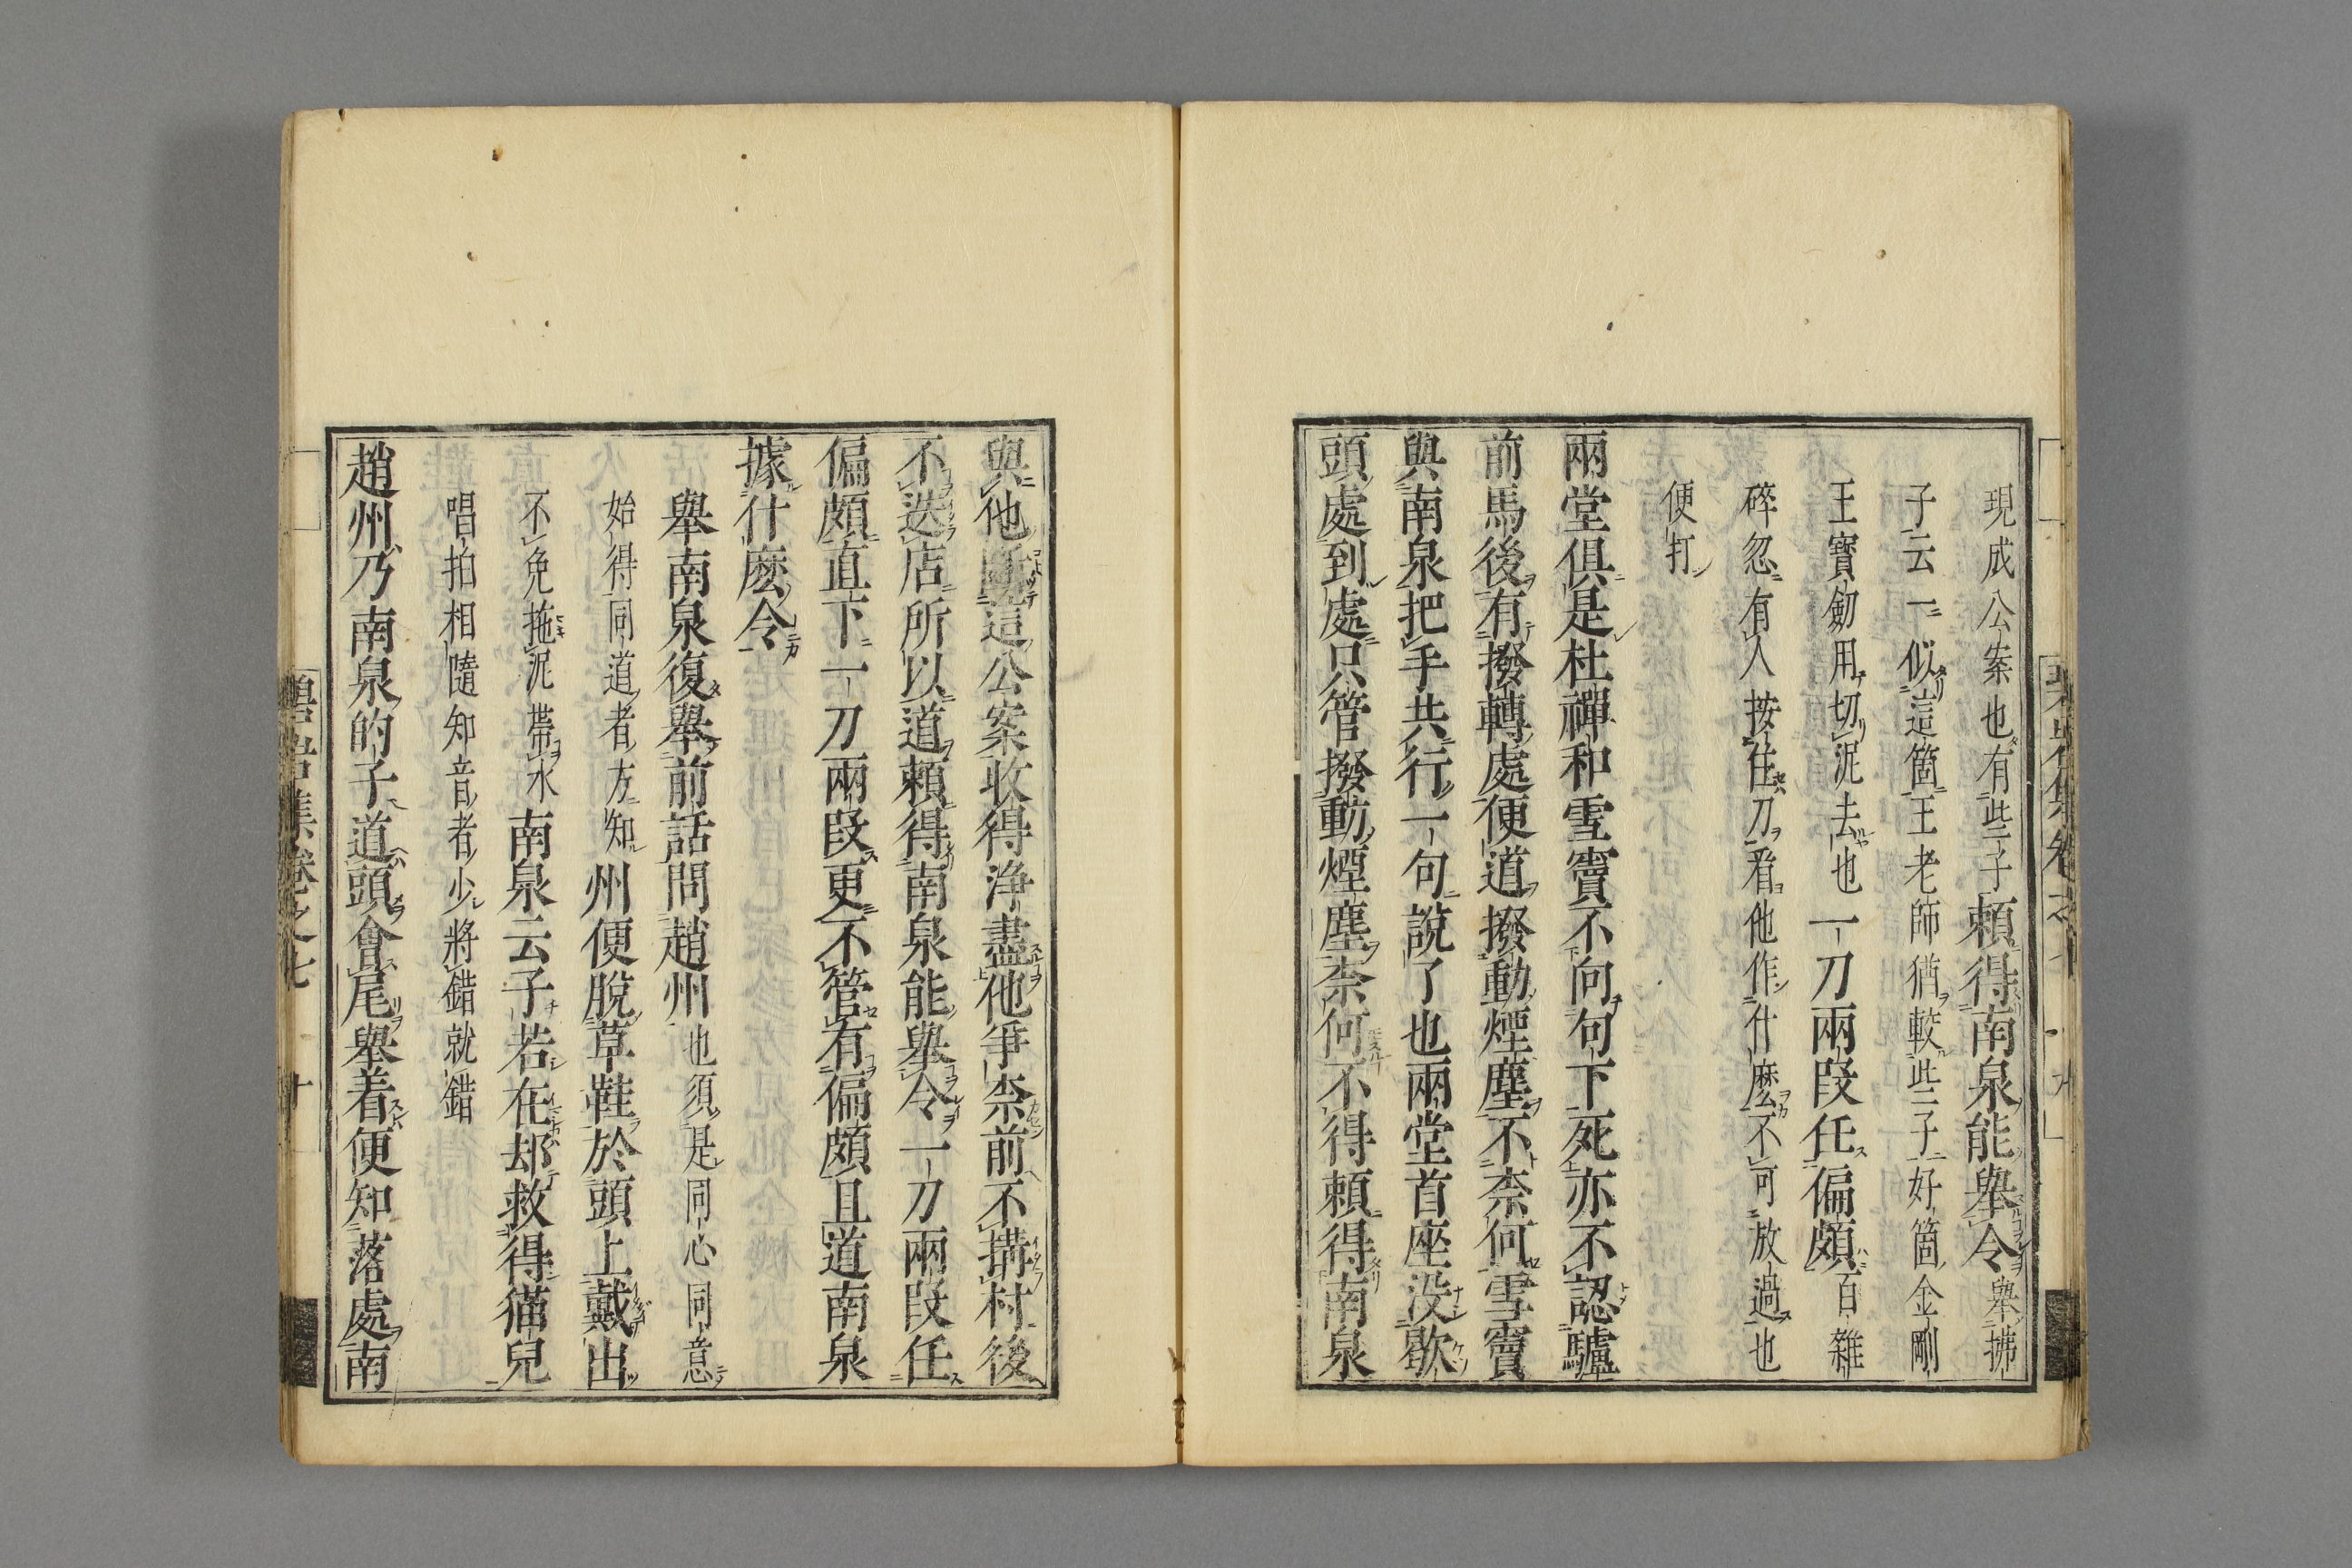 現成公案也有些子賴得南泉能舉令舉拂
子云一似這箇王老師猶較些子好箇金剛
王寶劒用切泥去也一刀兩段任偏頗百雜
碎忽有人按住刀看他作什麽不可放過也
便打
兩堂俱是杜禪和雪竇不向句下死亦不認驢
前馬後有撥轉處便道撥動煙塵不柰何雪竇
與南泉把手共行一句說了也兩堂首座没歇
頭處到處只管撥動煙塵柰何不得賴得南泉
與他斷這公案收得浄盡他爭柰前不搆村後
不迭店所以道賴得南泉能舉令一刀兩段任
偏頗直下一刀兩段更不管有偏頗且道南泉
據什麽令
舉南泉復舉前話問趙州也須是同心同意
始得同道者方知州便脫草鞋於頭上戴出
不免拖泥帶水南泉云子若在却救得猫兒
唱拍相隨知音者少將錯就錯
趙州乃南泉的子道頭會尾舉着便知落處南
碧岩集卷之七 十